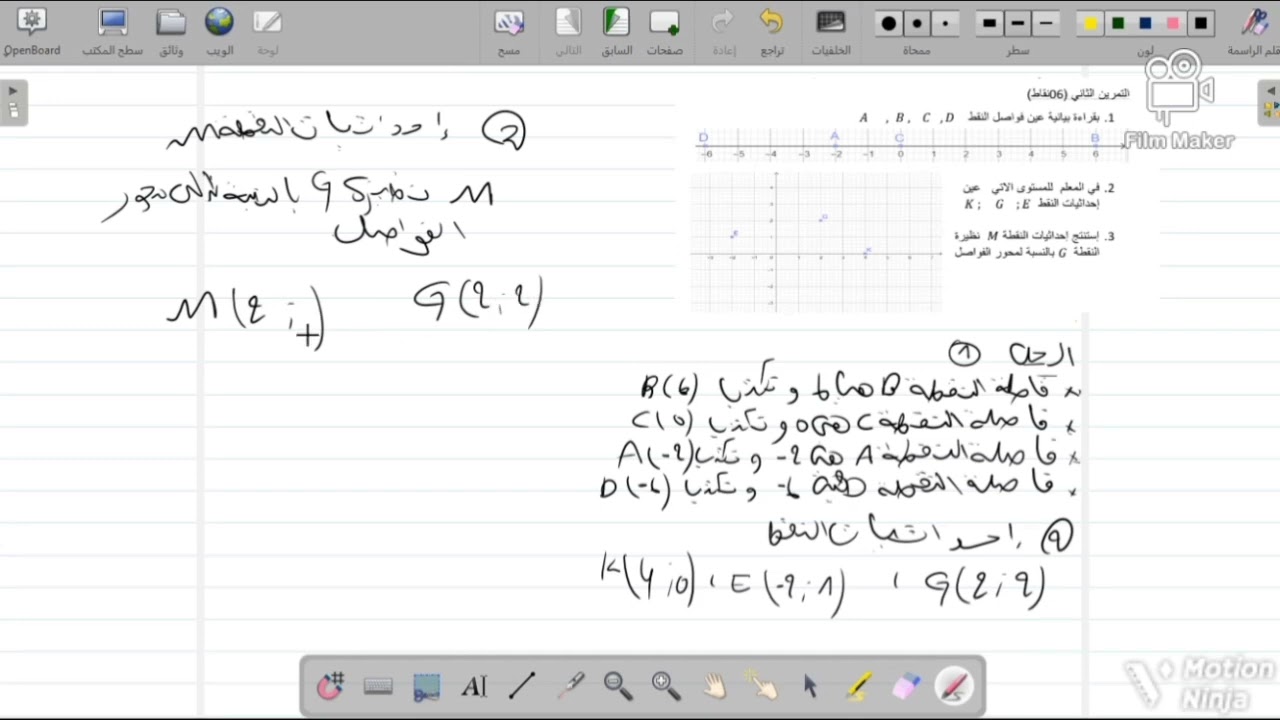 OpenBoard
سطح المكتب
وثائق
الويب
لوحة
مسح
التالي
السابق
صفحات
إعادة
تراجع
الخلفيات
ممحاة
سطر
لون
قلم الراسمة
Film Maker
التمرين الثاني (06نقاط)
1. بقراءة بيانية عين فواصل النقط A , B , C , D
D A C B
-6 -5 -4 -3 -2 -1 0 1 2 3 4 5 6
2. في المعلم للمستوى الاتي عين
إحداثيات النقط K ; G ; E
3. إستنتج إحداثيات النقطة M نظيرة
النقطة G بالنسبة لمحور الفواصل
الحل ①
× فاصلة النقطة B هي 6 و نكتب B(6)
× فاصلة النقطة C هي 0 و نكتب C(0)
× فاصلة النقطة A هي -2 و نكتب A(-2)
× فاصلة النقطة D هي -6 و نكتب D(-6)
② إحداثيات النقط
G(2;2) , E(-2;1) , K(4;0)
إحداثيات النقطة M
M نظيرة G بالنبسة إلى محور
الفواصل
G(2;2) M(2;+)
AI
Motion
Ninja